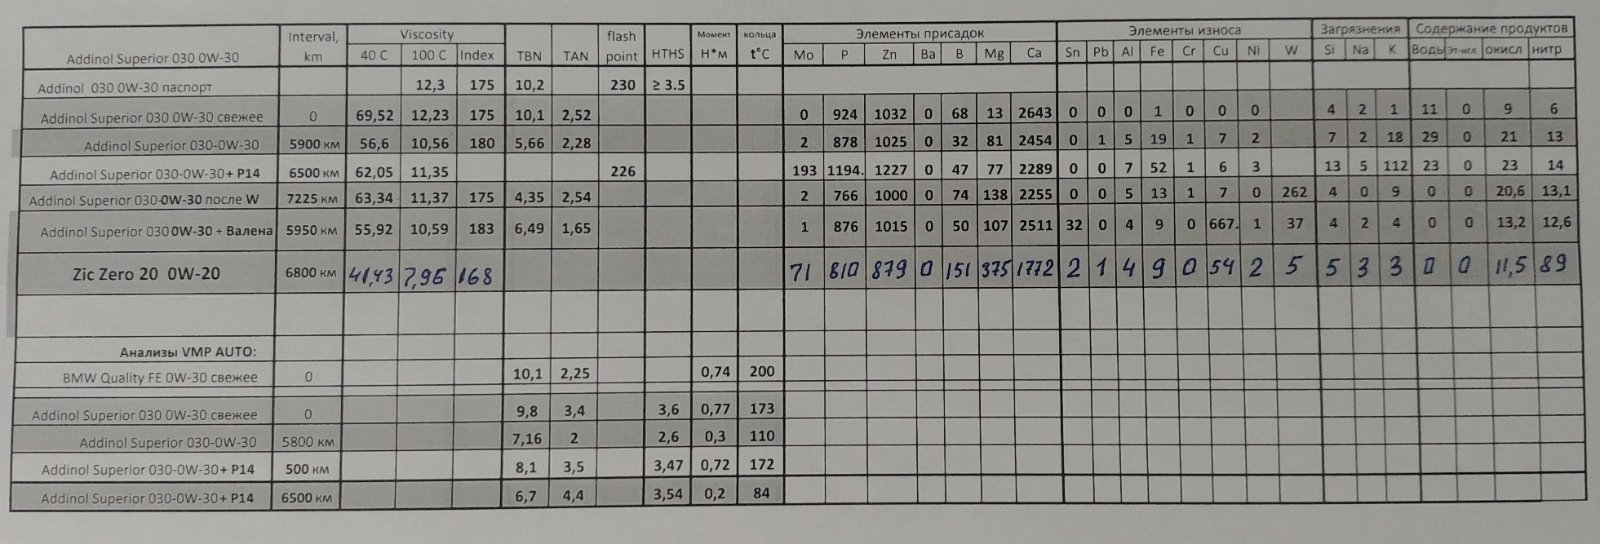 Addinol Superior 030 0W-30 Interval, km Viscosity 40 C 100 C Index TBN TAN flash point HTHS Момент Н*м кольца t°C Элементы присадок Mo P Zn Ba B Mg Ca Элементы износа Sn Pb Al Fe Cr Cu Ni W Загрязнения Si Na K Содержание продуктов Воды Эт-гкл окисл нитр
Addinol 030 0W-30 паспорт 12,3 175 10,2 230 ≥ 3.5
Addinol Superior 030 0W-30 свежее 0 69,52 12,23 175 10,1 2,52 0 924 1032 0 68 13 2643 0 0 0 1 0 0 0 4 2 1 11 0 9 6
Addinol Superior 030-0W-30 5900 км 56,6 10,56 180 5,66 2,28 2 878 1025 0 32 81 2454 0 1 5 19 1 7 2 7 2 18 29 0 21 13
Addinol Superior 030-0W-30+ P14 6500 км 62,05 11,35 226 193 1194. 1227 0 47 77 2289 0 0 7 52 1 6 3 13 5 112 23 0 23 14
Addinol Superior 030-0W-30 после W 7225 км 63,34 11,37 175 4,35 2,54 2 766 1000 0 74 138 2255 0 0 5 13 1 7 0 262 4 0 9 0 0 20,6 13,1
Addinol Superior 030 0W-30 + Валена 5950 км 55,92 10,59 183 6,49 1,65 1 876 1015 0 50 107 2511 32 0 4 9 0 667. 1 37 4 2 4 0 0 13,2 12,6
Zic Zero 20 0W-20 6800 км 41,43 7,95 168 71 810 879 0 151 375 1772 2 1 4 9 0 54 2 5 5 3 3 0 0 11,5 89
Анализы VMP AUTO:
BMW Quality FE 0W-30 свежее 0 10,1 2,25 0,74 200
Addinol Superior 030 0W-30 свежее 0 9,8 3,4 3,6 0,77 173
Addinol Superior 030-0W-30 5800 км 7,16 2 2,6 0,3 110
Addinol Superior 030-0W-30+ P14 500 км 8,1 3,5 3,47 0,72 172
Addinol Superior 030-0W-30+ P14 6500 км 6,7 4,4 3,54 0,2 84